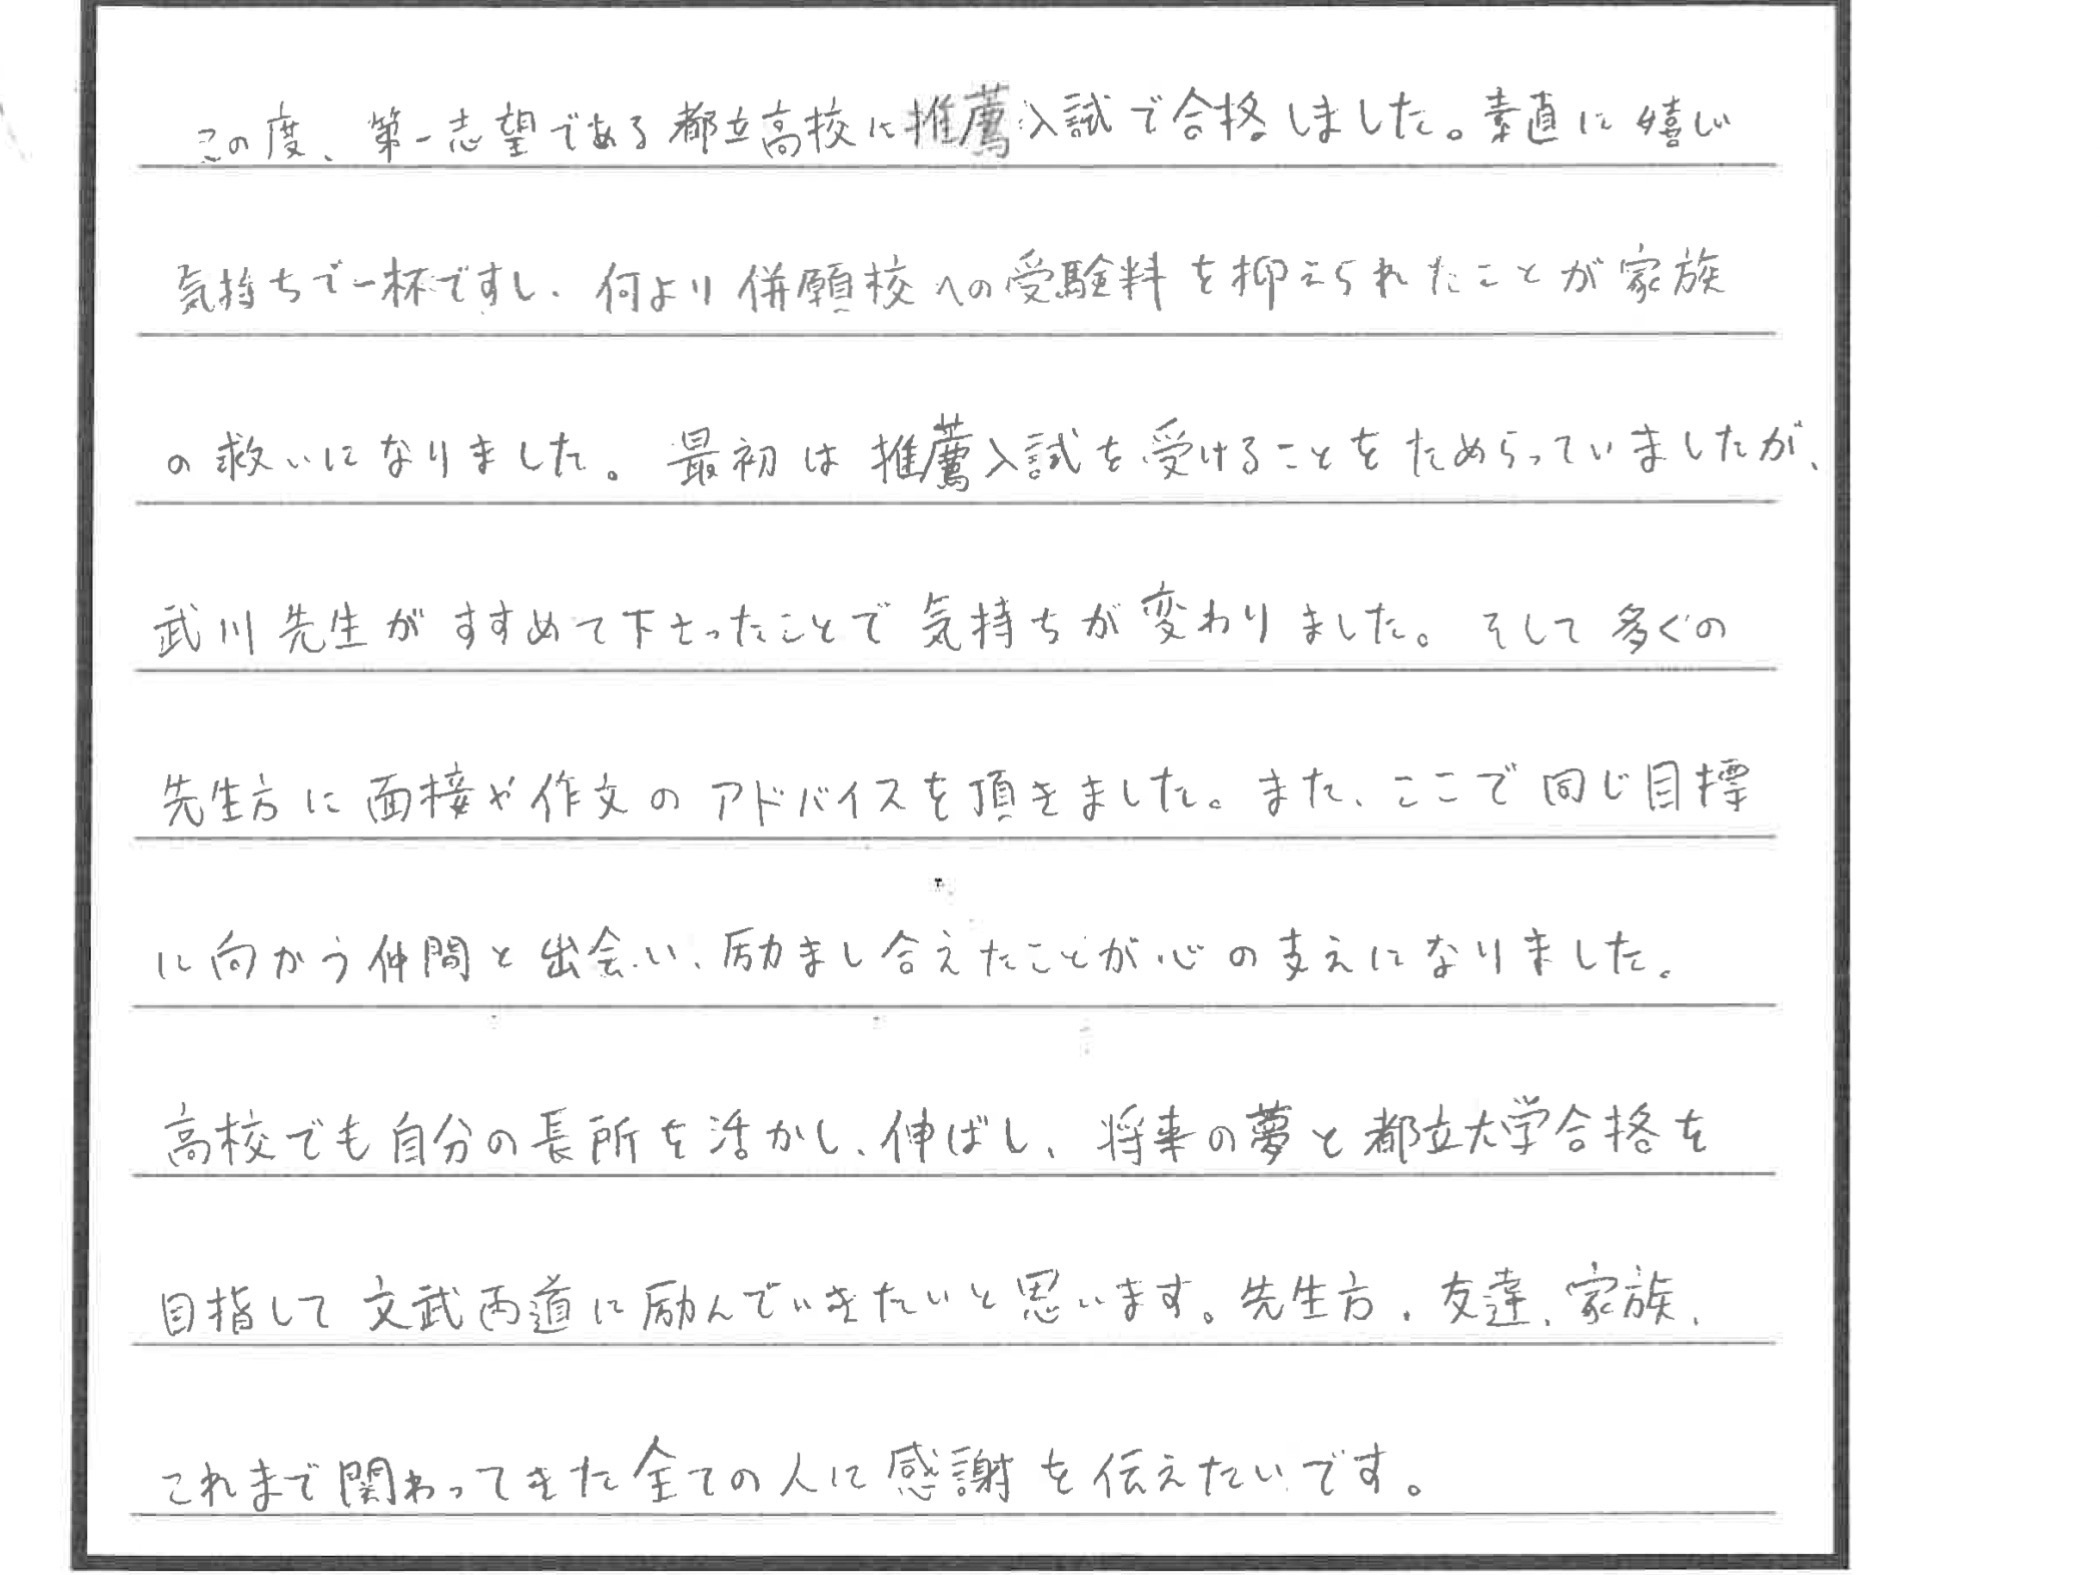 この度、第一志望である都立高校に推薦入試で合格しました。素直に嬉しい
気持ちで一杯ですし、何より併願校への受験料を抑えられたことが家族
の救いになりました。最初は推薦入試を受けることをためらっていましたが、
武川先生がすすめて下さったことで気持ちが変わりました。そして多くの
先生方に面接や作文のアドバイスを頂きました。また、ここで同じ目標
に向かう仲間と出会い、励まし合えたことが心の支えになりました。
高校でも自分の長所を活かし、伸ばし、将来の夢と都立大学合格を
目指して文武両道に励んでいきたいと思います。先生方、友達、家族、
これまで関わってきた全ての人に感謝を伝えたいです。